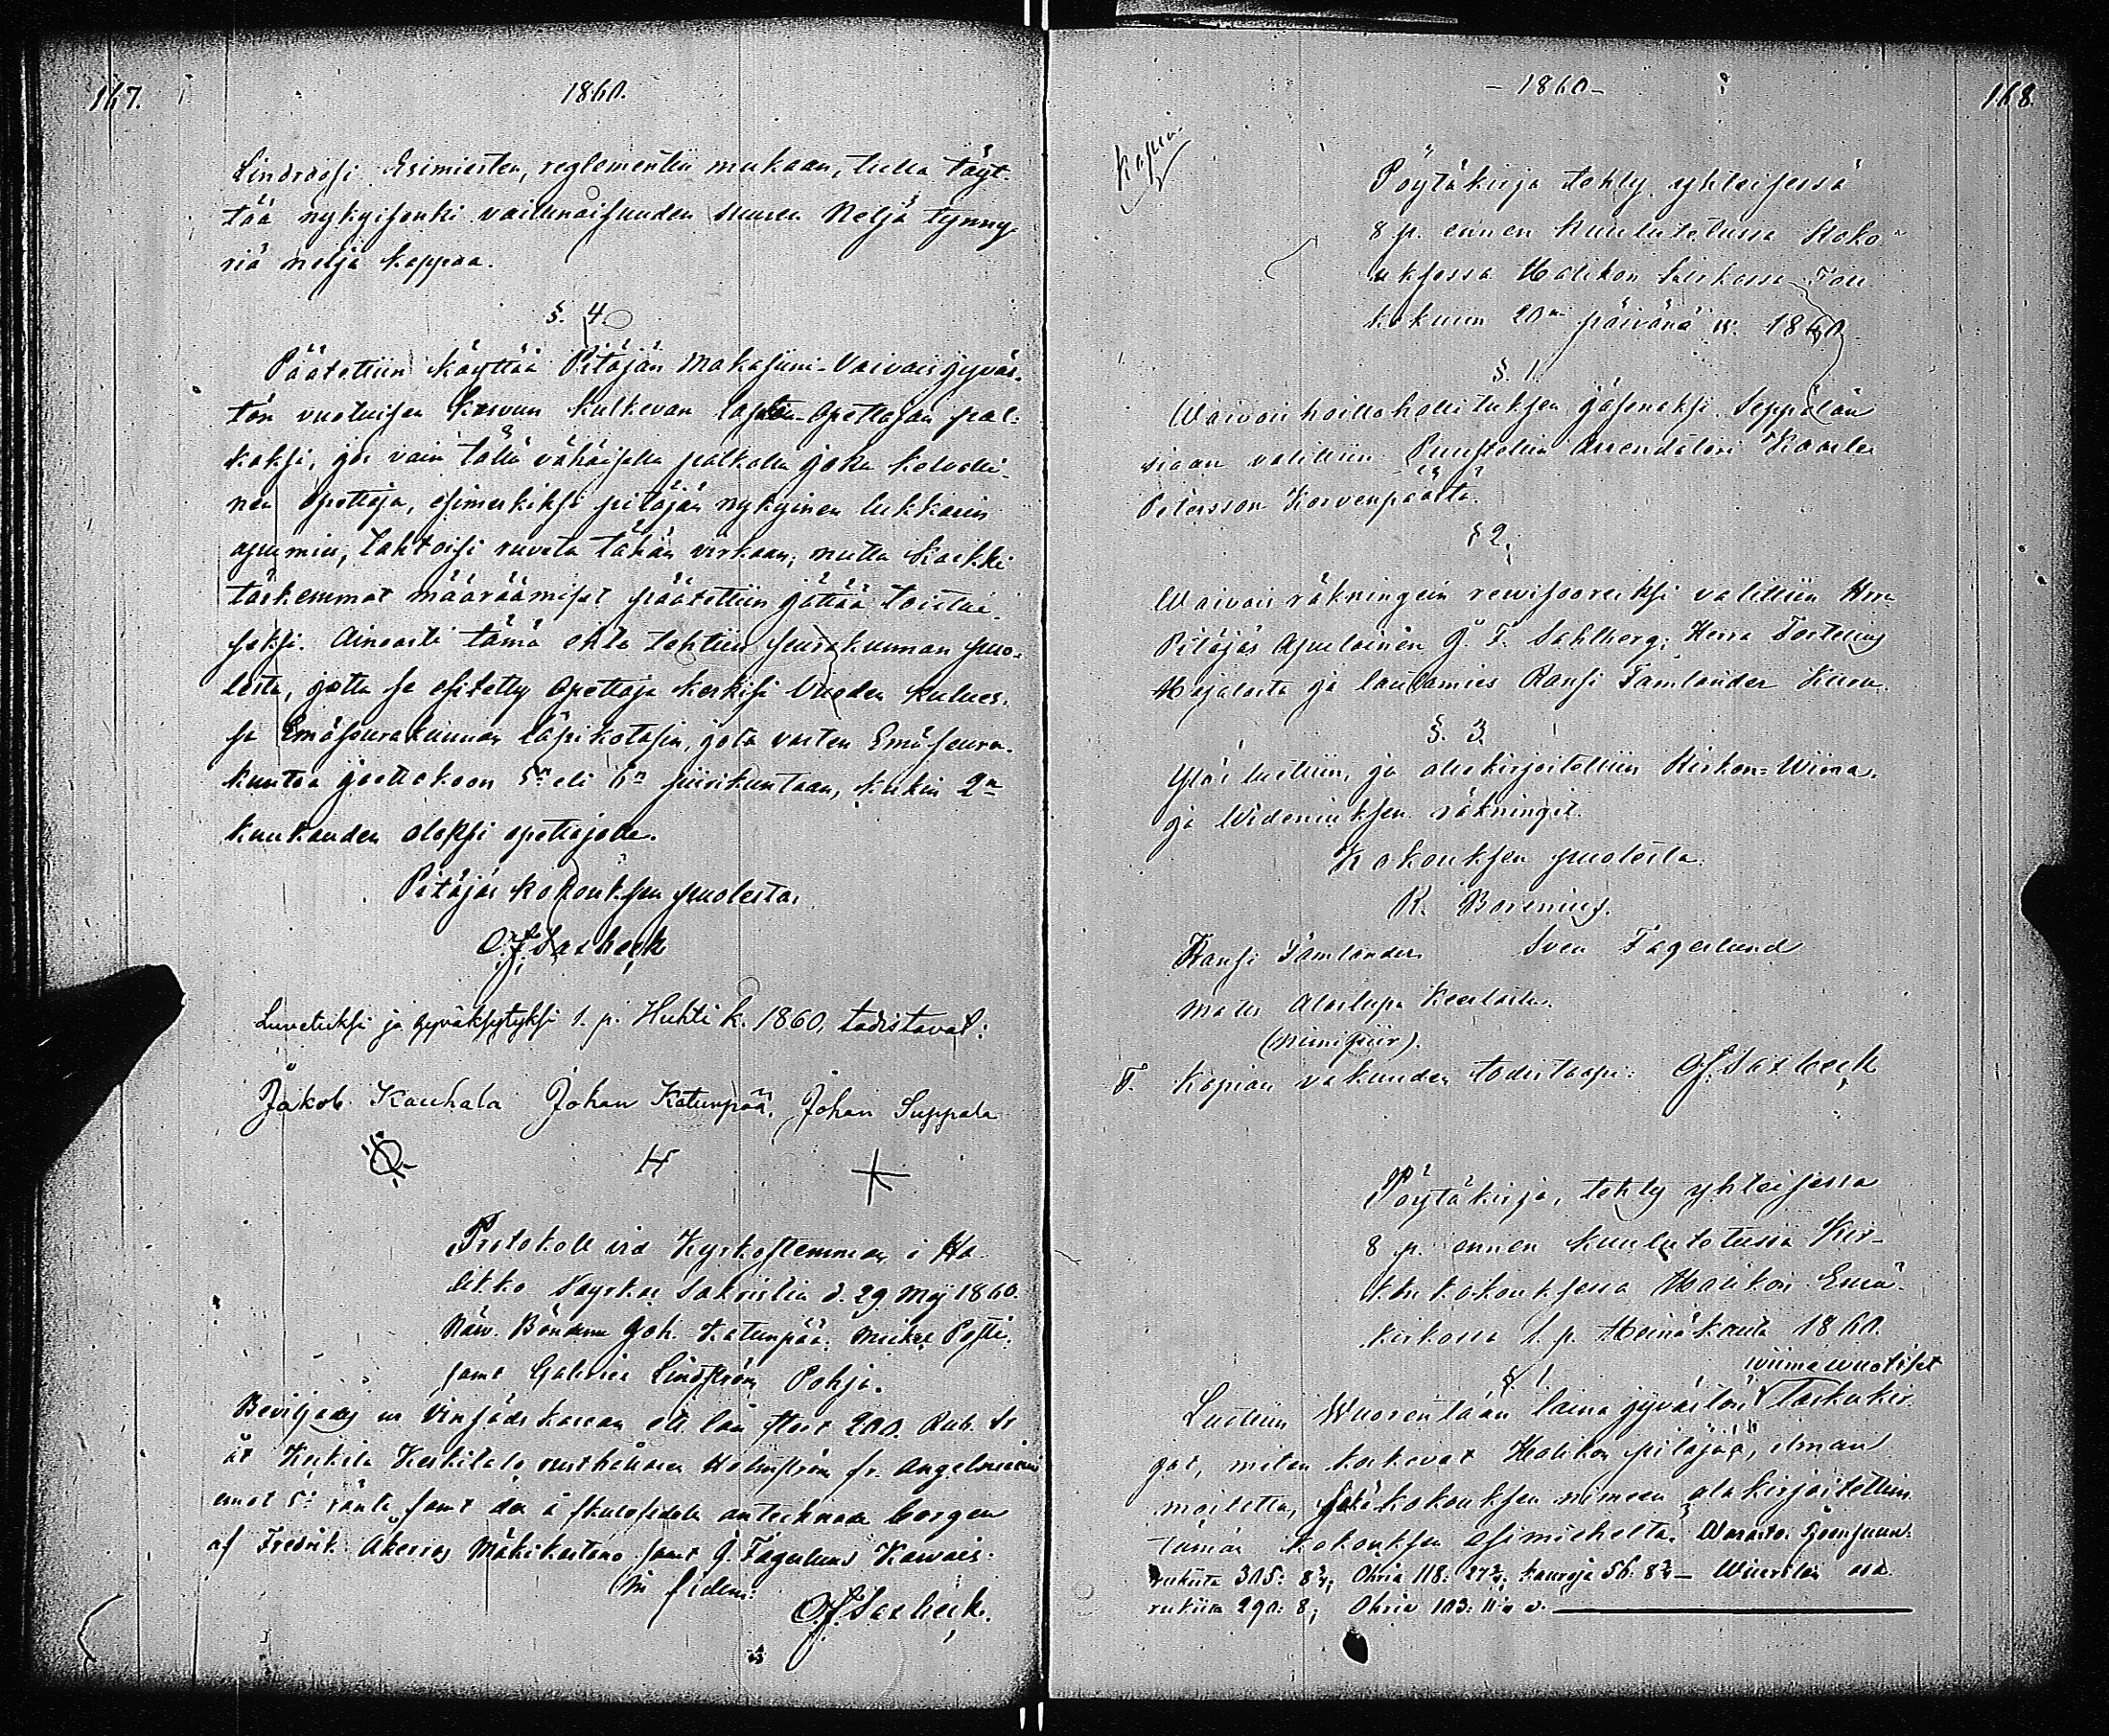 167.
1860.
Lindroosi Esimiesten, reglementin mukaan, tulla täyt-
tää nykyisenki vaillinaisuuden suuren Neljä tynny-
riä neljä kappaa.
§. 4.
Päätettiin käyttää Pitäjän Makasiini-Vaivaisjyväs-
tön vuotuisen kasvun kulkevan lasten-Opettajan pal-
kaksi, jos vain tällä vähäisellä palkalla joku kelvolli-
nen opettaja, esimerkiksi pitäjän nykyinen lukkarin
apumies, tahtoisi ruveta tähän virkaan; mutta kaikki
tarkemmat määräämiset päätettiin jättää toistai-
seksi. Ainoasti tämä ehto tehtiin seurakunnan puo-
lesta, jotta se esitetty Opettaja keskisi Vuoden kulues-
sa Emäseurakunnan läpikotasin, jota varten Emäseura-
kuntaa jaettakoon 5n eli 6n piirikuntaan, kukin 2n
kuukauden oloksi opettajalle.
Pitäjäs kokouksen puolesta,
O. J. Saxbeck
Luvetuksi ja hyväksytyksi 1. p. Huhti k. 1860, todistavat:
Jakob Kauhala Johan Katunpää, Johan Suppala
Protokoll vid Kyrkostemman i Ha-
likko Kyrkas Sakristia d. 29 Maj 1860.
Närv. Bönderne Joh. Katunpää. Mickel Posti,
samt Lindström Pohja.
Beviljades ur Vinsäds kassan ett lån stort 200. Rub. Sr
åt Keskitalo rusthållaren Holmström fr. Angelniemi
emot 5: ränta samt den å skuldsedeln antecknade borgen
af Fredrik Åkerros Mäkikartano samt J. Fagerlund Kawais.
In fidem:
O. J. Saxbeck.
168.
- 1860 -
Kopia
Pöytäkirja tehty yhteisessä
8 p. ennen kuulutetussa Koko-
uksessa Halikon kirkossa Tou-
kokuun 20n päivänä v. 1860
§. 1.
Waivais hoitohallituksen jäseneksi Seppälän
siaan valittiin Puustellin Arrendatori Kaarle
Petersson Korvenpäästä.
§ 2.
Waivais räkningein rewisooreiksi valittiin Hra
Pitäjäs Apulainen J. F. Sahlberg; Herra Fortelius
Majalasta ja lautamies Hansi Tamlander
§. 3.
Ylös luettiin, ja allekirjoitettiin Kirkon- Wiina-
ja räkningit.
Kokouksen puolesta.
K. Borenius.
Hansi Tamlander. Sven Fagerlund
Matts Alastupa
(nimipiir).
Kopian vakuuden todistaapi: O. J. Saxbeck
Pöytäkirja, tehty yhteisessä
8 p. ennen kuulutetussa Kir-
kon kokouksessa Halikon Emä-
kirkossa 1. p. Heinäkuuta 1860.
§. 1. wiimewuotiset
Luettiin Wuorentaan laina jyvästön Tarkukir-
jat, miten koskevat Halikon pitäjää, ilman
moitetta, kokouksen nimeen alakirjoitettiin
tämän kokouksen esimieheltä.
rukiita 305: 8¾; Ohria 118: 27¾; kauroja 56: 8¾ -
rukiita 290: 8; Ohria 103: